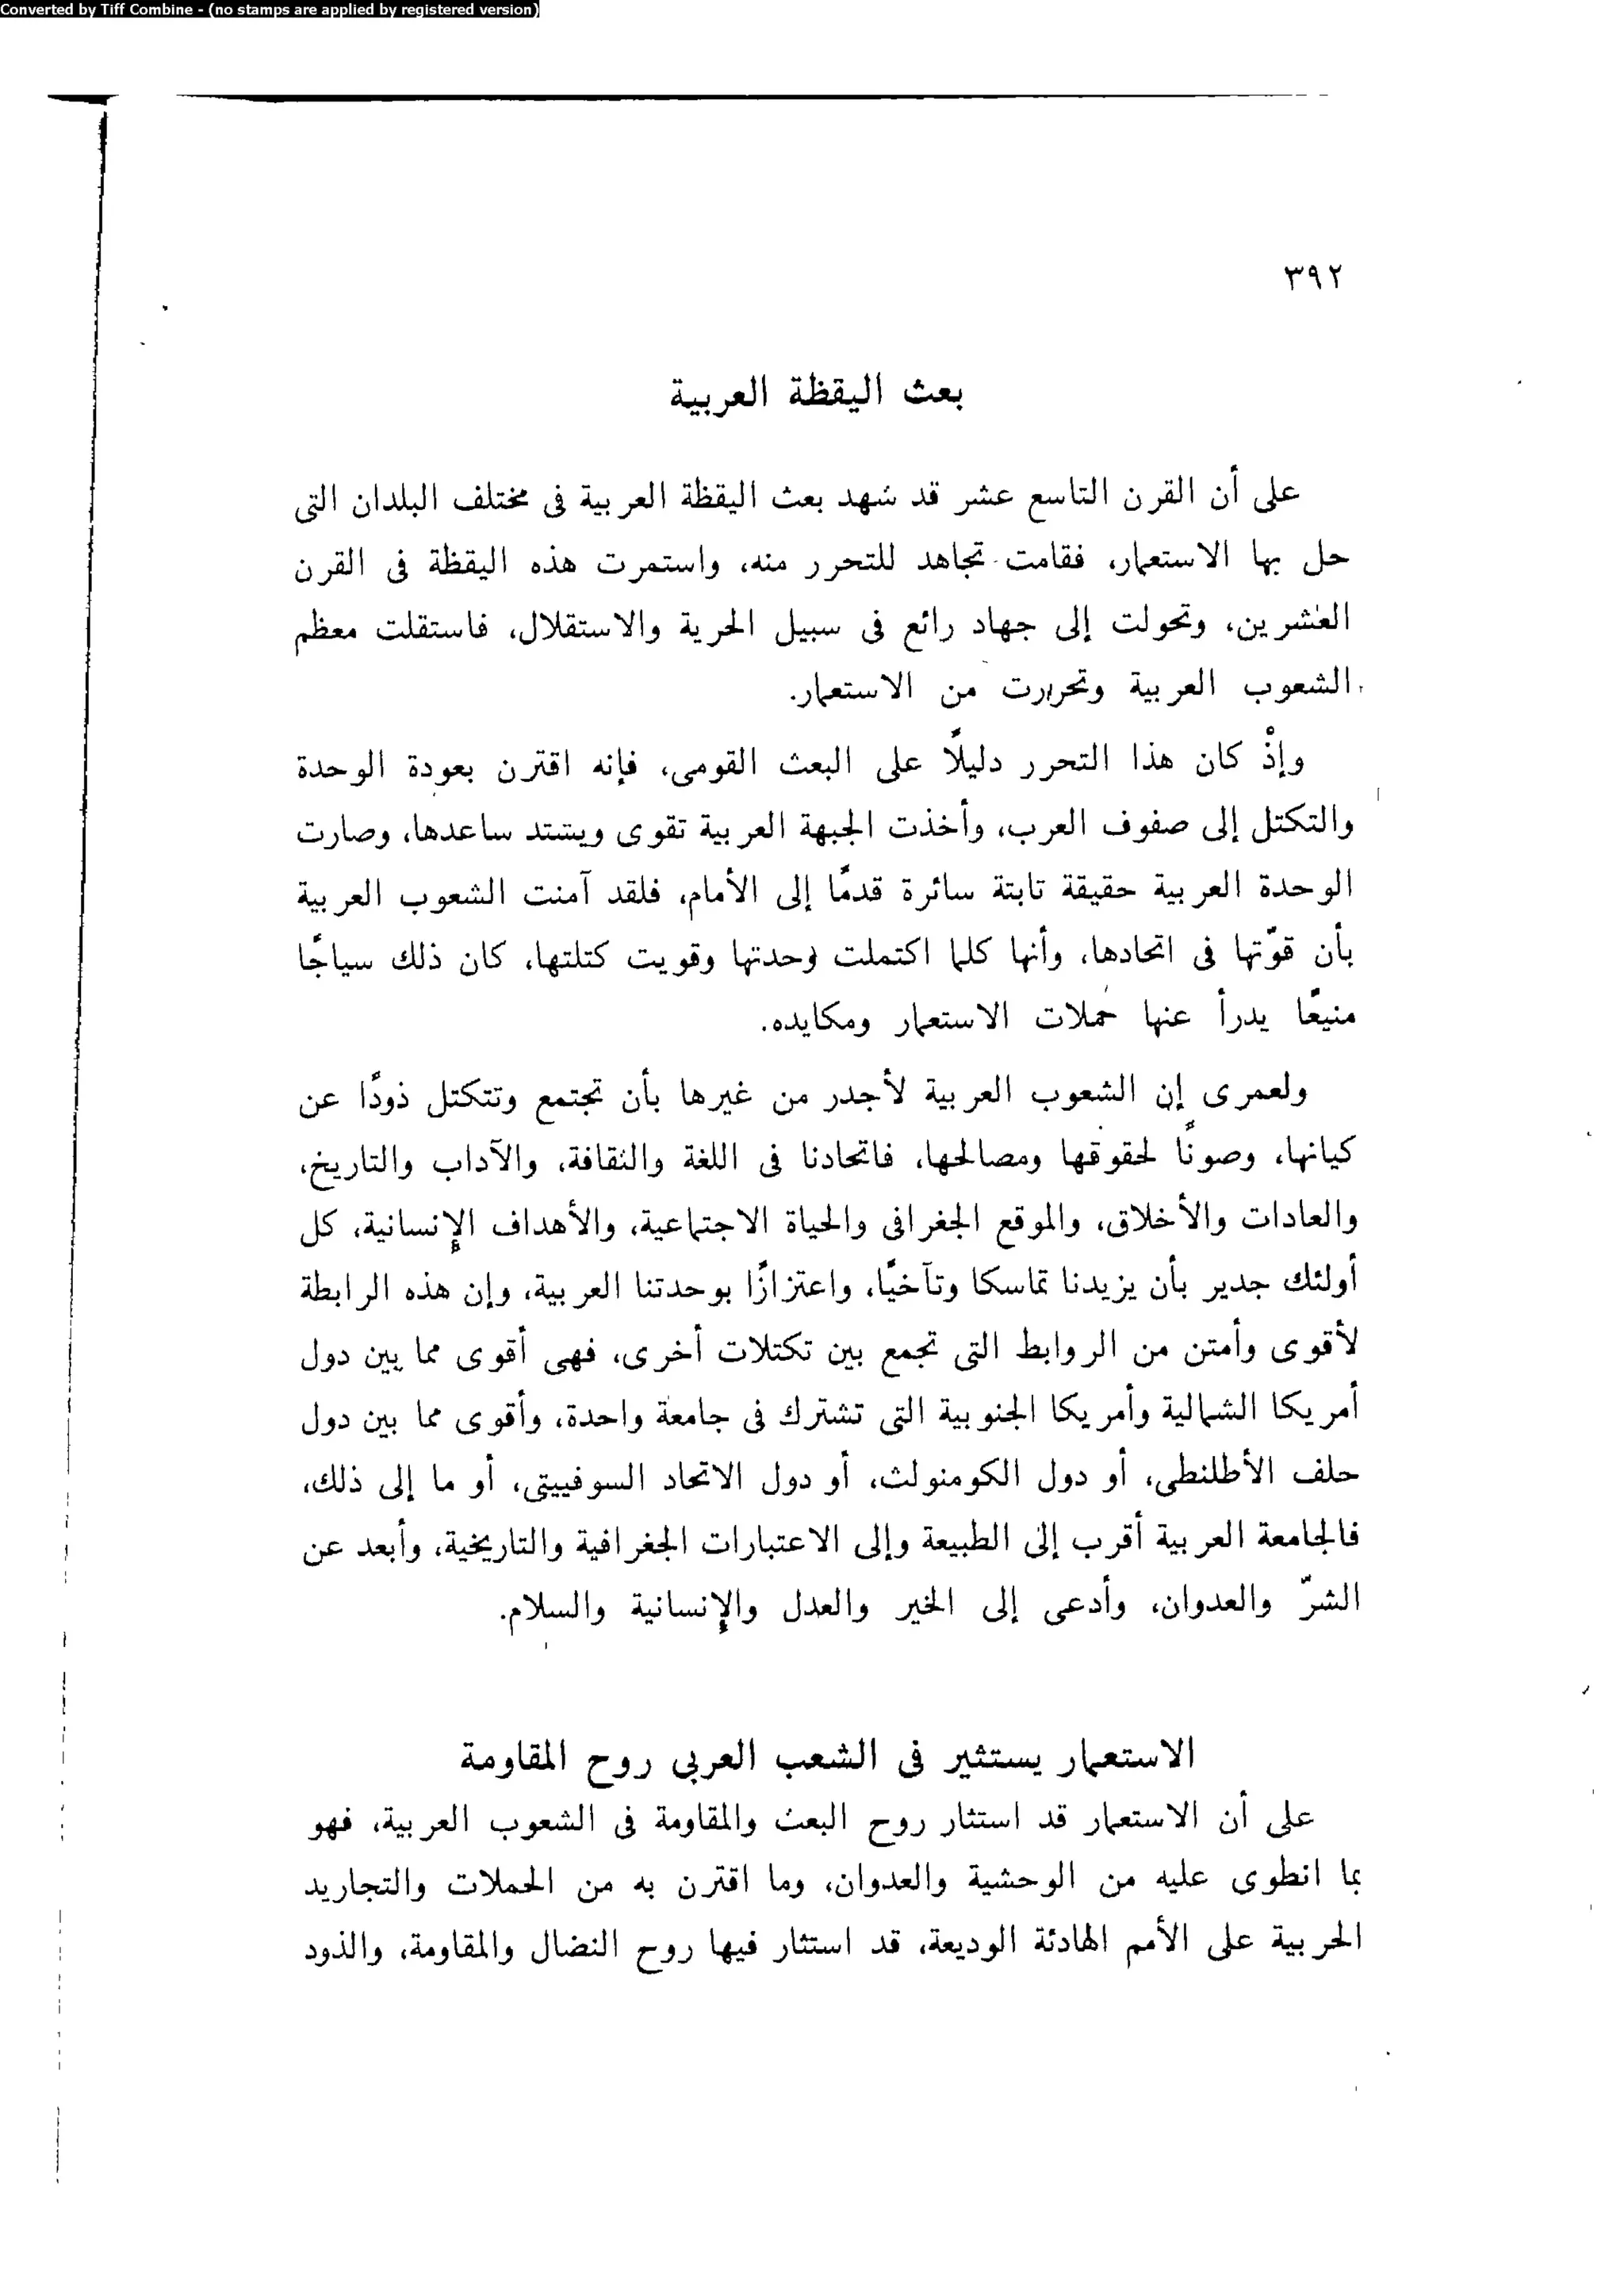 Converted by Tiff Combine - (no stamps are applied by registered version)
٣٩٢
بعث اليقظة العربية
على أن القرن التاسع عشر قد شهد بعث اليقظة العربية فى مختلف البلدان التى
حل بها الاستعمار، فقامت تجاهد للتحرر منه، واستمرت هذه اليقظة فى القرن
العشرين، وتحولت إلى جهاد رائع فى سبيل الحرية والاستقلال، فاستقلت معظم
الشعوب العربية وتحررت من الاستعمار.
وإذْ كان هذا التحرر دليلًا على البعث القومى، فإنه اقترن بعودة الوحدة
والتكتل إلى صفوف العرب، وأخذت الجبهة العربية تقوى ويشتد ساعدها، وصارت
الوحدة العربية حقيقة ثابتة سائرة قدمًا إلى الأمام، فلقد آمنت الشعوب العربية
بأن قوّتها فى اتحادها، وأنها كلما اكتملت وحدتها وقويت كتلتها، كان ذلك سياجًا
منيعًا يدرأ عنها حملات الاستعمار ومكايده.
ولعمرى إن الشعوب العربية لأجدر من غيرها بأن تجتمع وتتكتل ذودًا عن
كيانها، وصونًا لحقوقها ومصالحها، فاتحادنا فى اللغة والثقافة، والآداب والتاريخ،
والعادات والأخلاق، والموقع الجغرافى والحياة الاجتماعية، والأهداف الإنسانية، كل
أولئك جدير بأن يزيدنا تماسكا وتآخيًا، واعتزازًا بوحدتنا العربية، وإن هذه الرابطة
لأقوى وأمتن من الروابط التى تجمع بين تكتلات أخرى، فهى أقوى مما بين دول
أمريكا الشمالية وأمريكا الجنوبية التى تشترك فى جامعة واحدة، وأقوى مما بين دول
حلف الأطلنطى، أو دول الكومنولث، أو دول الاتحاد السوفييتى، أو ما إلى ذلك،
فالجامعة العربية أقرب إلى الطبيعة وإلى الاعتبارات الجغرافية والتاريخية، وأبعد عن
الشرّ والعدوان، وأدعى إلى الخير والعدل والإنسانية والسلام.
الاستعمار يستثير فى الشعب العربى روح المقاومة
على أن الاستعمار قد استثار روح البعث والمقاومة فى الشعوب العربية، فهو
بما انطوى عليه من الوحشية والعدوان، وما اقترن به من الحملات والتجاريد
الحربية على الأمم الهادئة الوديعة، قد استثار فيها روح النضال والمقاومة، والذود